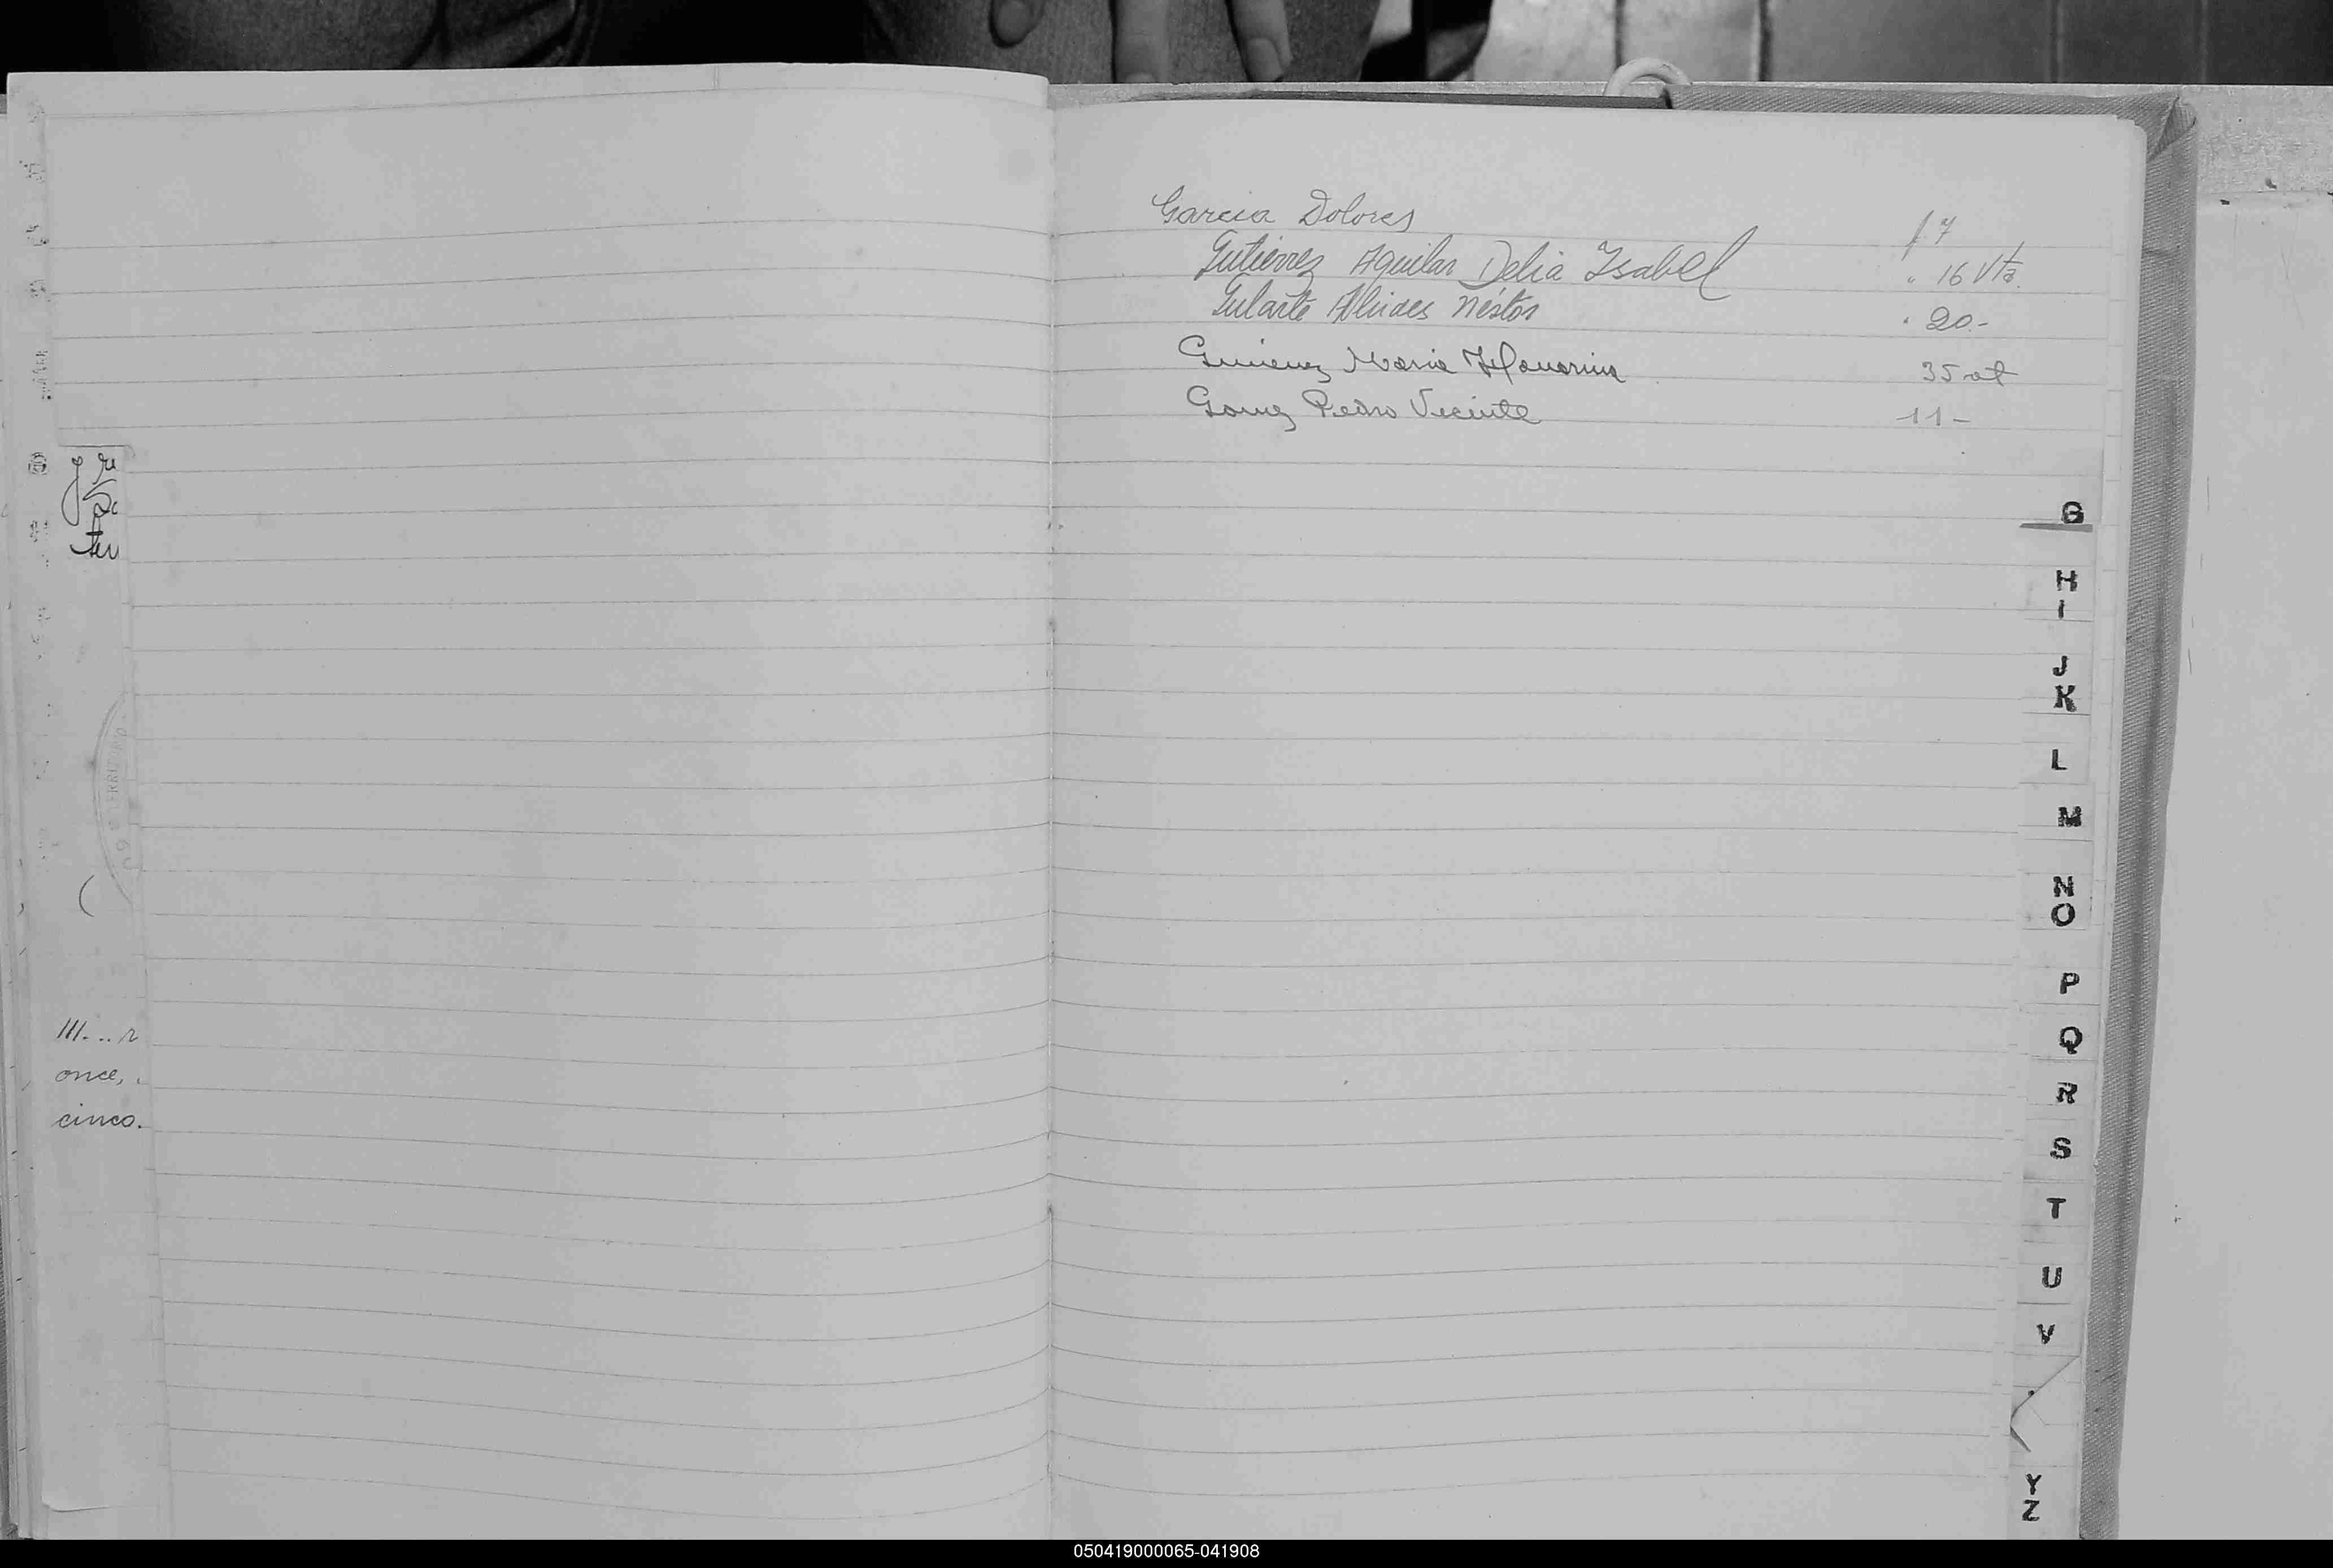 Garcia Dolores f 7
Gutierrez Aguilar Delia Isabel " 16 Vta.
Gularte Alcides Néstor " 20.-
Gimenez Maria 35 vt
Gomez Pedro Vicente 11-
G
H
I
J
K
L
M
N
O
P
Q
R
S
T
U
V
Y
Z
TERRITORIO
III...
once,
cinco.
050419000065-041908